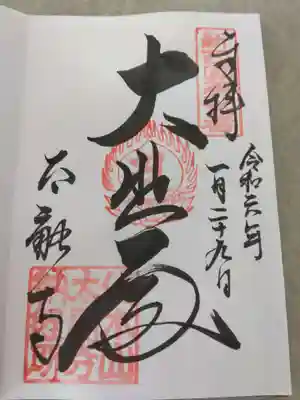 奉拝
令和六年
一月二十九日
大悲殿
太融寺